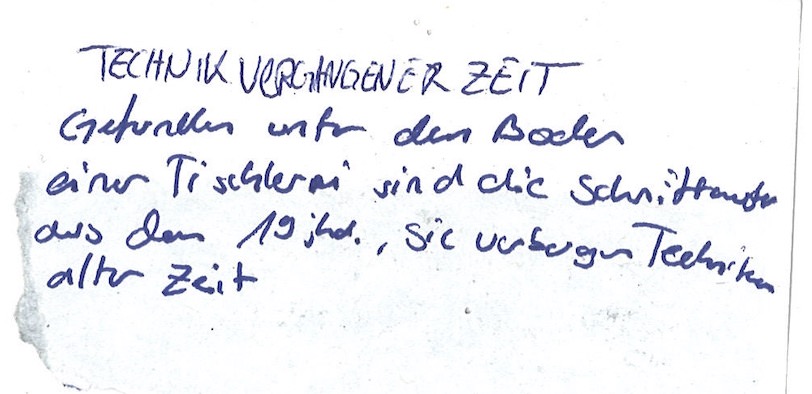 TECHNIK VERGANGENER ZEIT
Gefunden unter dem Boden
einer Tischlerei sind die Schnittmuster
aus dem 19 jhd., sie verbergen Techniken
alter Zeit